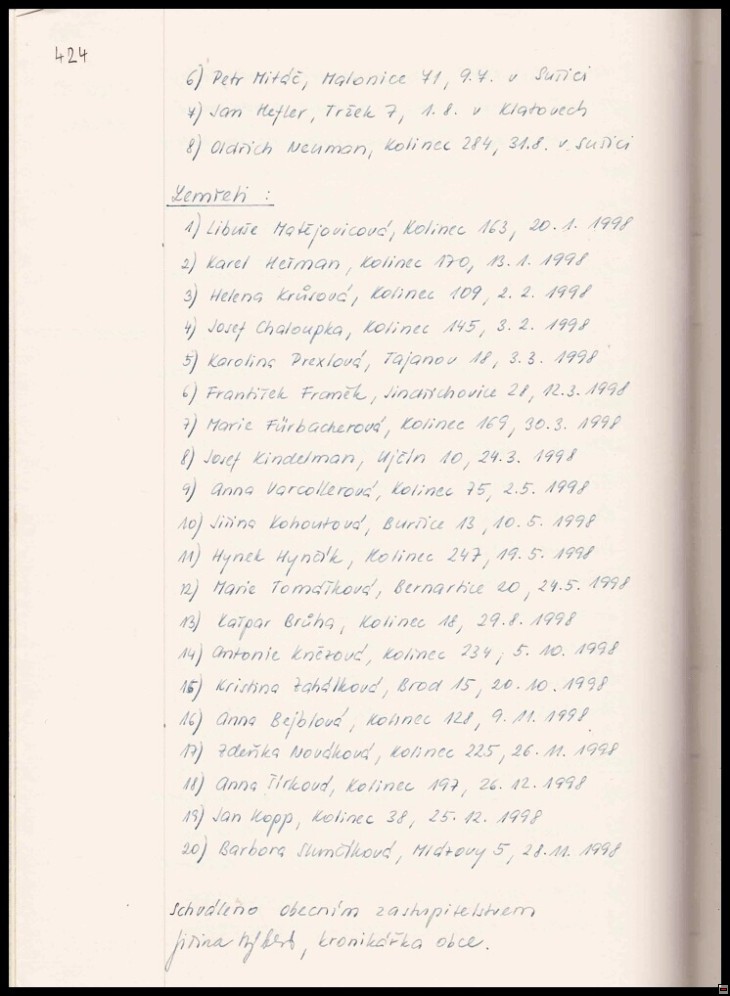 424
6) Petr Mitáč, Malonice 71, 9.7. v Sušici
7) Jan Hefler, Tržek 7, 1.8. v Klatovech
8) Oldřich Neuman, Kolinec 284, 31.8. v Sušici
Zemřeli :
1) Libuše Matějovicová, Kolinec 163, 20.1. 1998
2) Karel Heřman, Kolinec 170, 13.1. 1998
3) Helena Krůsová, Kolinec 109, 2.2. 1998
4) Josef Chaloupka, Kolinec 145, 3.2. 1998
5) Karolina Prexlová, Tajanov 18, 3.3. 1998
6) František Franěk, Jindřichovice 28, 12.3. 1998
7) Marie Fürbacherová, Kolinec 169, 30.3. 1998
8) Josef Kindelman, Ujčín 10, 24.3. 1998
9) Anna Varcollerová, Kolinec 75, 2.5. 1998
10) Jiřina Kohoutová, Buršice 13, 10.5. 1998
11) Hynek Hynčík, Kolinec 247, 19.5. 1998
12) Marie Tomášková, Bernartice 20, 24.5. 1998
13) Kašpar Brůha, Kolinec 18, 29.8. 1998
14) Antonie Kněžová, Kolinec 234, 5.10. 1998
15) Kristina Zahálková, Brod 15, 20.10. 1998
16) Anna Bejblová, Kolinec 128, 9.11. 1998
17) Zdeňka Nováková, Kolinec 225, 26.11. 1998
18) Anna Jírková, Kolinec 197, 26.12. 1998
19) Jan Kopp, Kolinec 38, 25.12. 1998
20) Barbora Slunčíková, Mlázovy 5, 28.11. 1998
Schváleno obecním zastupitelstvem
Jiřina, kronikářka obce.